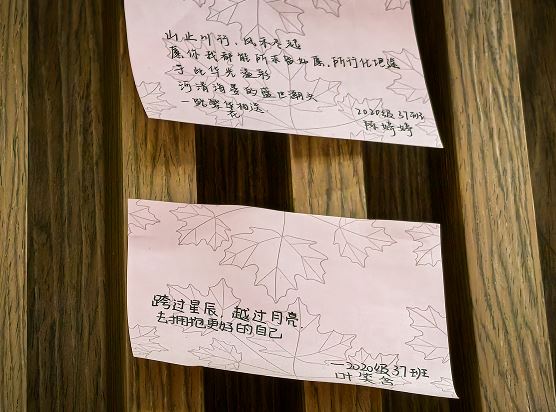 山止川行,风禾尽起
愿你我都能所求皆如愿,所行化坦途
于此华光溢彩
河清海晏的蓝色潮头
2020级37班
陈婷婷
跨过星辰,越过月亮
去拥抱更好的自己
—2020级37班
叶奕含